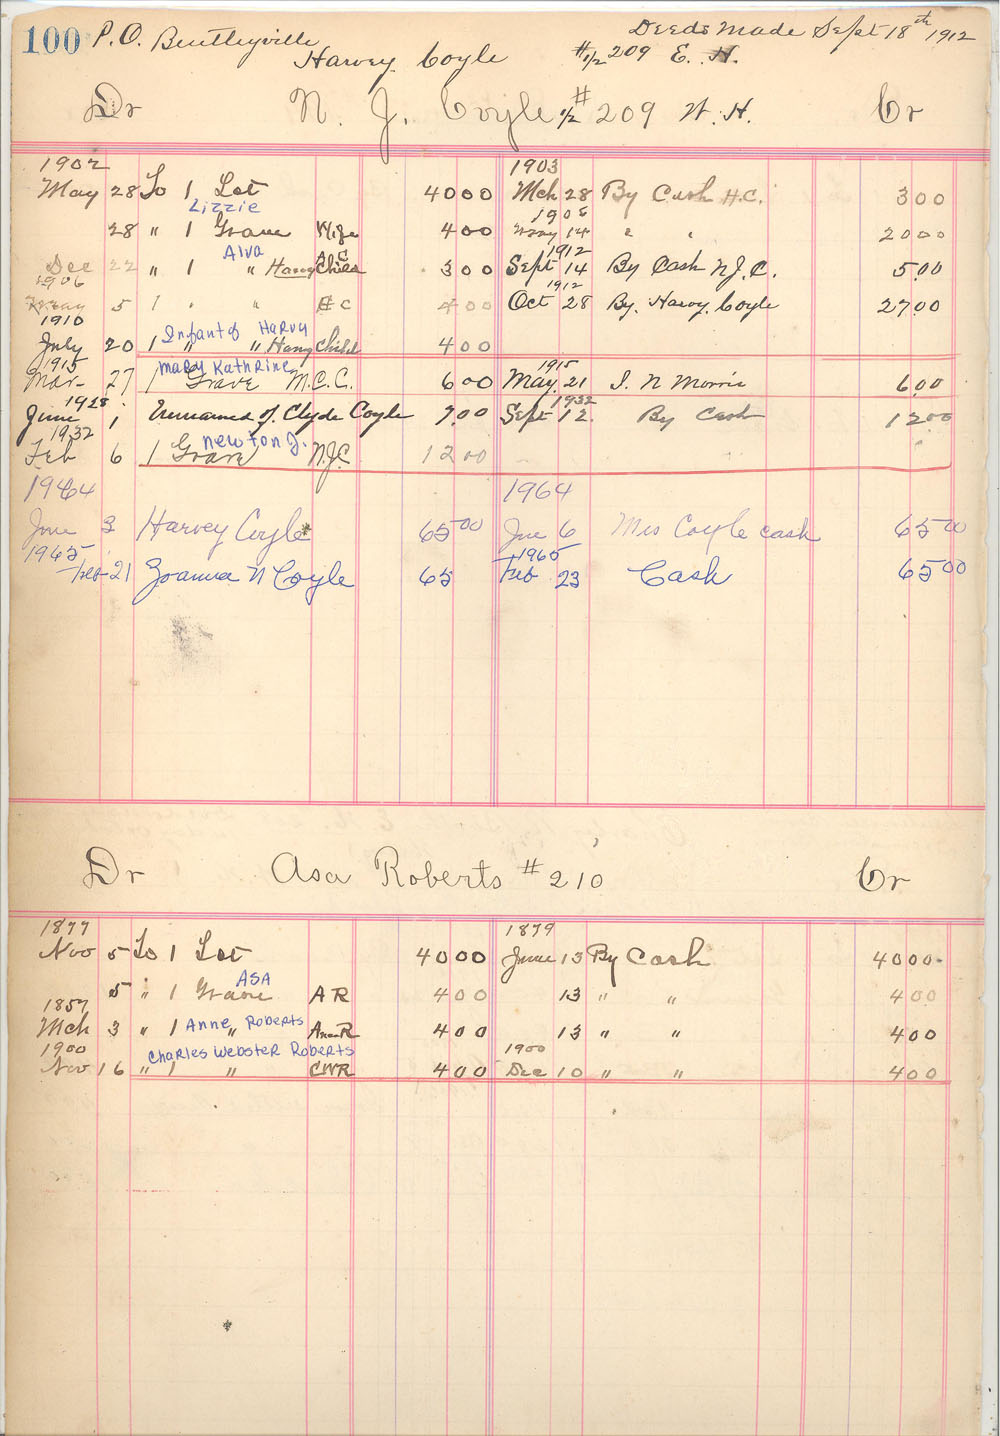 100 P.O. Bentleyville Deeds Made Sept 18th 1912
Harvey Coyle #1/2 209 E. H.
Dr N. J. Coyle 1/2 # 209 W. H. Cr
1902 1903
May 28 To 1 Lot 4000 Mch 28 By Cash H.C. 300
Lizzie 1908
28 " 1 Grave Wife 400 May 14 " " 2000
Alva A C 1912
Dec 22 " 1 " Harvy Child 300 Sept 14 By Cash N.J.C. 5.00
1906 1912
5 1 " " C 400 Oct 28 By. Harvy. Coyle 2700
1910 Infant of Harvy
July 20 1 " " Harvy Child 400
1915 Mary Kathrine 1915
Mar- 27 1 Grave M.C.C. 600 May 21 I. N Morris 6.00
1928 1932
June 1 Unnamed of Clyde Coyle 9.00 Sept 12. By Cash 1200
1932 Newton J.
Feb 6 1 Grave N.J.C 1200
1964 1964
June 3 Harvey Coyle 6500 Jue 6 Mrs Coyle cash 6500
1965 1965
Feb 21 Joanna N Coyle 65 Feb 23 Cash 6500
Dr Asa Roberts # 210 Cr
1877 1879
Nov 5 To 1 Lot 4000 June 13 By Cash 4000
Asa
5 " 1 Grave A R 400 13 " " 400
1857
Mch 3 " 1 Anne " Roberts Ann R 400 13 " " 400
1900 Charles Webster Roberts 1900
Nov 16 " 1 " CWR 400 Dec 10 " " 400